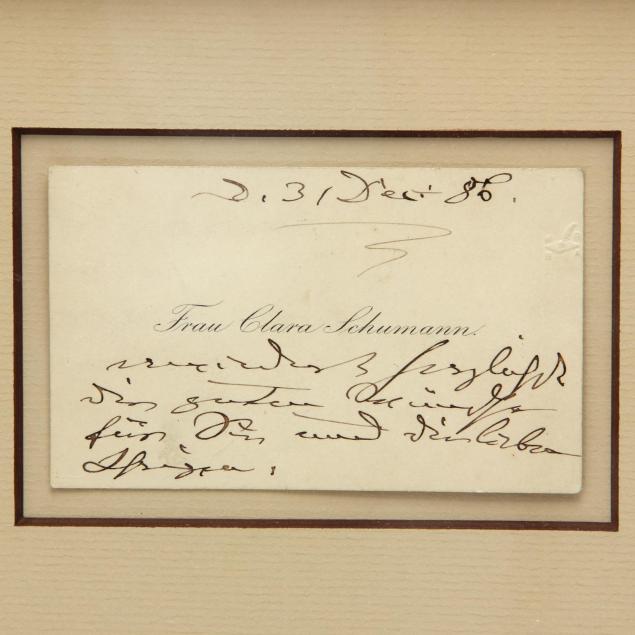 D. 31 Dec. 86.
Frau Clara Schumann.
erwiedert herzlichst
die guten Wünsche
für Sie und die lieben
Ihrigen.